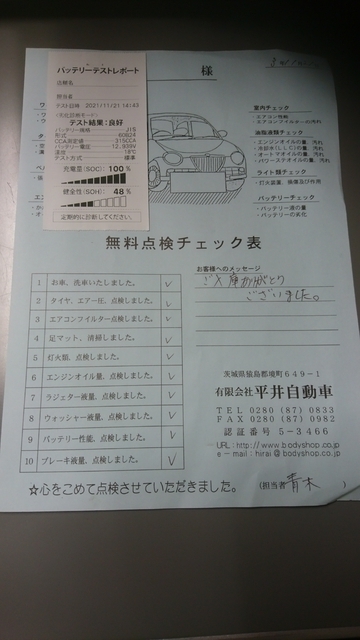 様
バッテリーテストレポート
店舗名
担当者
テスト日時 2021/11/21 14:43
テスト結果:良好
バッテリー規格 JIS
形式 60B24
CCA測定値 315CCA
バッテリー電圧 12.939V
温度 18℃
テスト方式 標準
充電量(SOC): 100 %
健全性(SOH): 48 %
定期的に診断してください。
室内チェック
・エアコン性能
・エアコンフィルターの汚れ
油脂液類チェック
・エンジンオイルの量、汚れ
・冷却水(L.L.C)の量、汚れ
・オートマオイルの量、汚れ
・パワステオイルの量、汚れ
ライト類チェック
・灯火装置、損傷及び作用
バッテリーチェック
・バッテリー液の量
・バッテリーの劣化
無料点検チェック表
1 お車、洗車いたしました。 ✓
2 タイヤ、エアー圧、点検しました。 ✓
3 エアコンフイルター点検しました。 ✓
4 足マット、清掃しました。 ✓
5 灯火類、点検しました。 ✓
6 エンジンオイル量、点検しました。 ✓
7 ラジェター液量、点検しました。 ✓
8 ウォッシャー液量、点検しました。 ✓
9 バッテリー性能、点検しました。 ✓
10 ブレーキ液量、点検しました。 ✓
お客様へのメッセージ
ご入庫ありがとう
ございました。
茨城県猿島郡境町649-1
有限会社 平井自動車
TEL 0280 (87) 0833
FAX 0280 (87) 0982
認証番号 5-3466
URL:http://www.bodyshop.co.jp
e-mail:hirai@bodyshop.co.jp
☆心をこめて点検させていただきました。 (担当者 青木 )